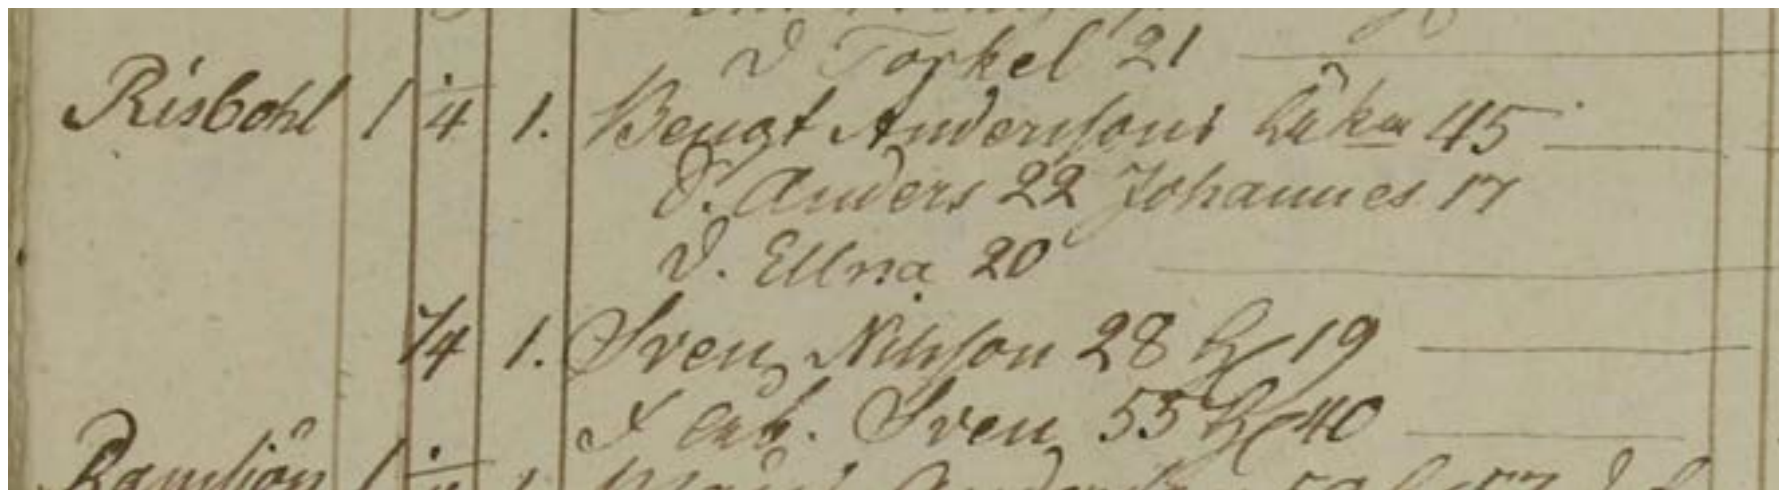 D Torkel 21
Risbohl 1 1/4 1. Bengt Anderssons Enka 45
S. Anders 22 Johannes 17
D. Ellna 20
1/4 1. Sven Nilsson 28 h 19
Sven 55 h 40
Ramsjön 1